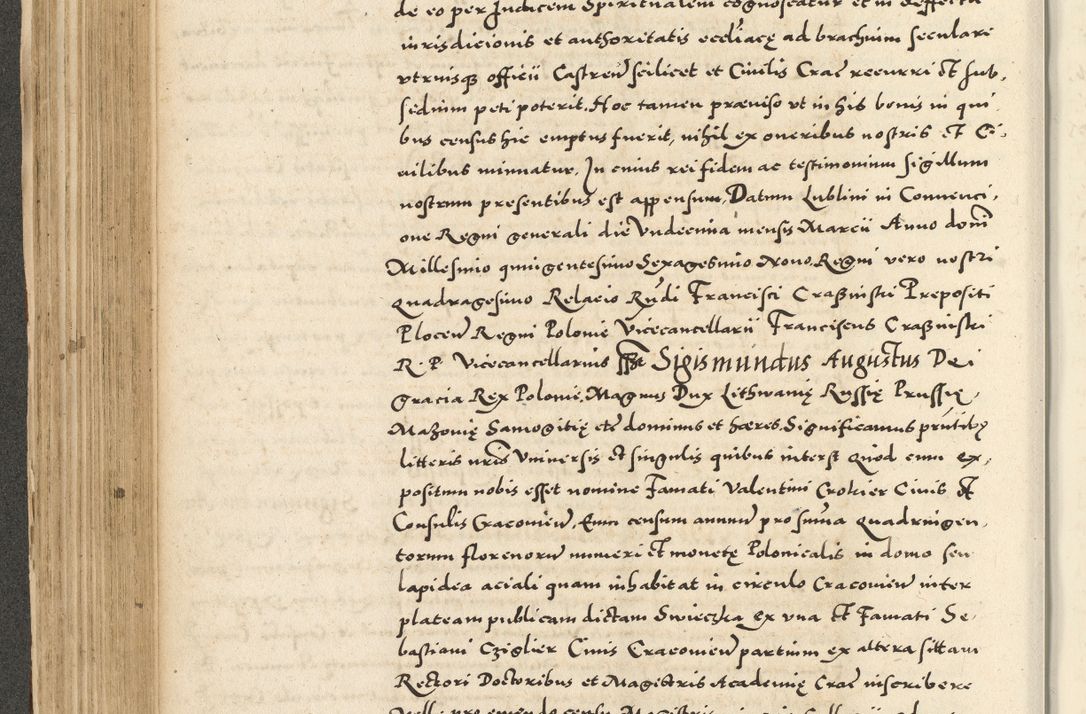 de eo per Iudicem Spiritualem cognoscatur et in deffectu
iurisdicionis et authoritatis eccl̃iacę ad brachium seculare
vtriusqꝫ officii Castreñ scilicet et Ciuilis Crac̃ recurri et sub,
sedium peti poterit. Hoc tamen præuiso vt in his bonis in qui
bus census hic emptus fuerit, nihil ex oneribus nostris et Ci,
uilibus minuatur. In cuius rei fidem ac testimonium sigillum
nostrum presentibus est appensum. Datum Lublini in Conuenci,
one Regni generali die Vndecima mensis Marcii Anno domĩ
Millesimo quingentesimo Sexagesimo Nono. Regni vero nostri
quadragesimo Relacio Rñdi Francisci Craßinski Prepositi
Ploceñ Regni Polonię Vicecancellarii Franciscus Craßinski
R. P. Vicecancellarius sst Sigismundus Augustus Dei
gracia Rex Polonię, Magnus Dux Lithwanię Russię Prussię,
Mazouię Samogitię etc̃ dominus et hæres. Significamus prñtibꝰ
litteris nr̃is Vniuersis et singulis quibus interest Quod cum ex,
positum nobis esset nomine Famati Valentini Crokier Ciuis et
Consulis Cracouieñ, Eum censum annuũ pro sum̃a quadringen,
torum florenorũ numeri et monetę Polonicalis in domo seu
lapidea aciali quam inhabitat in circulo Cracouieñ inter
plateam publicam dictam Swieczka ex vna et Famati Se,
bastiani Cziglier Ciuis Cracouieñ partium ex altera sittam
Rectori Doctoribus et Magistris Academię Crac̃ inscribere